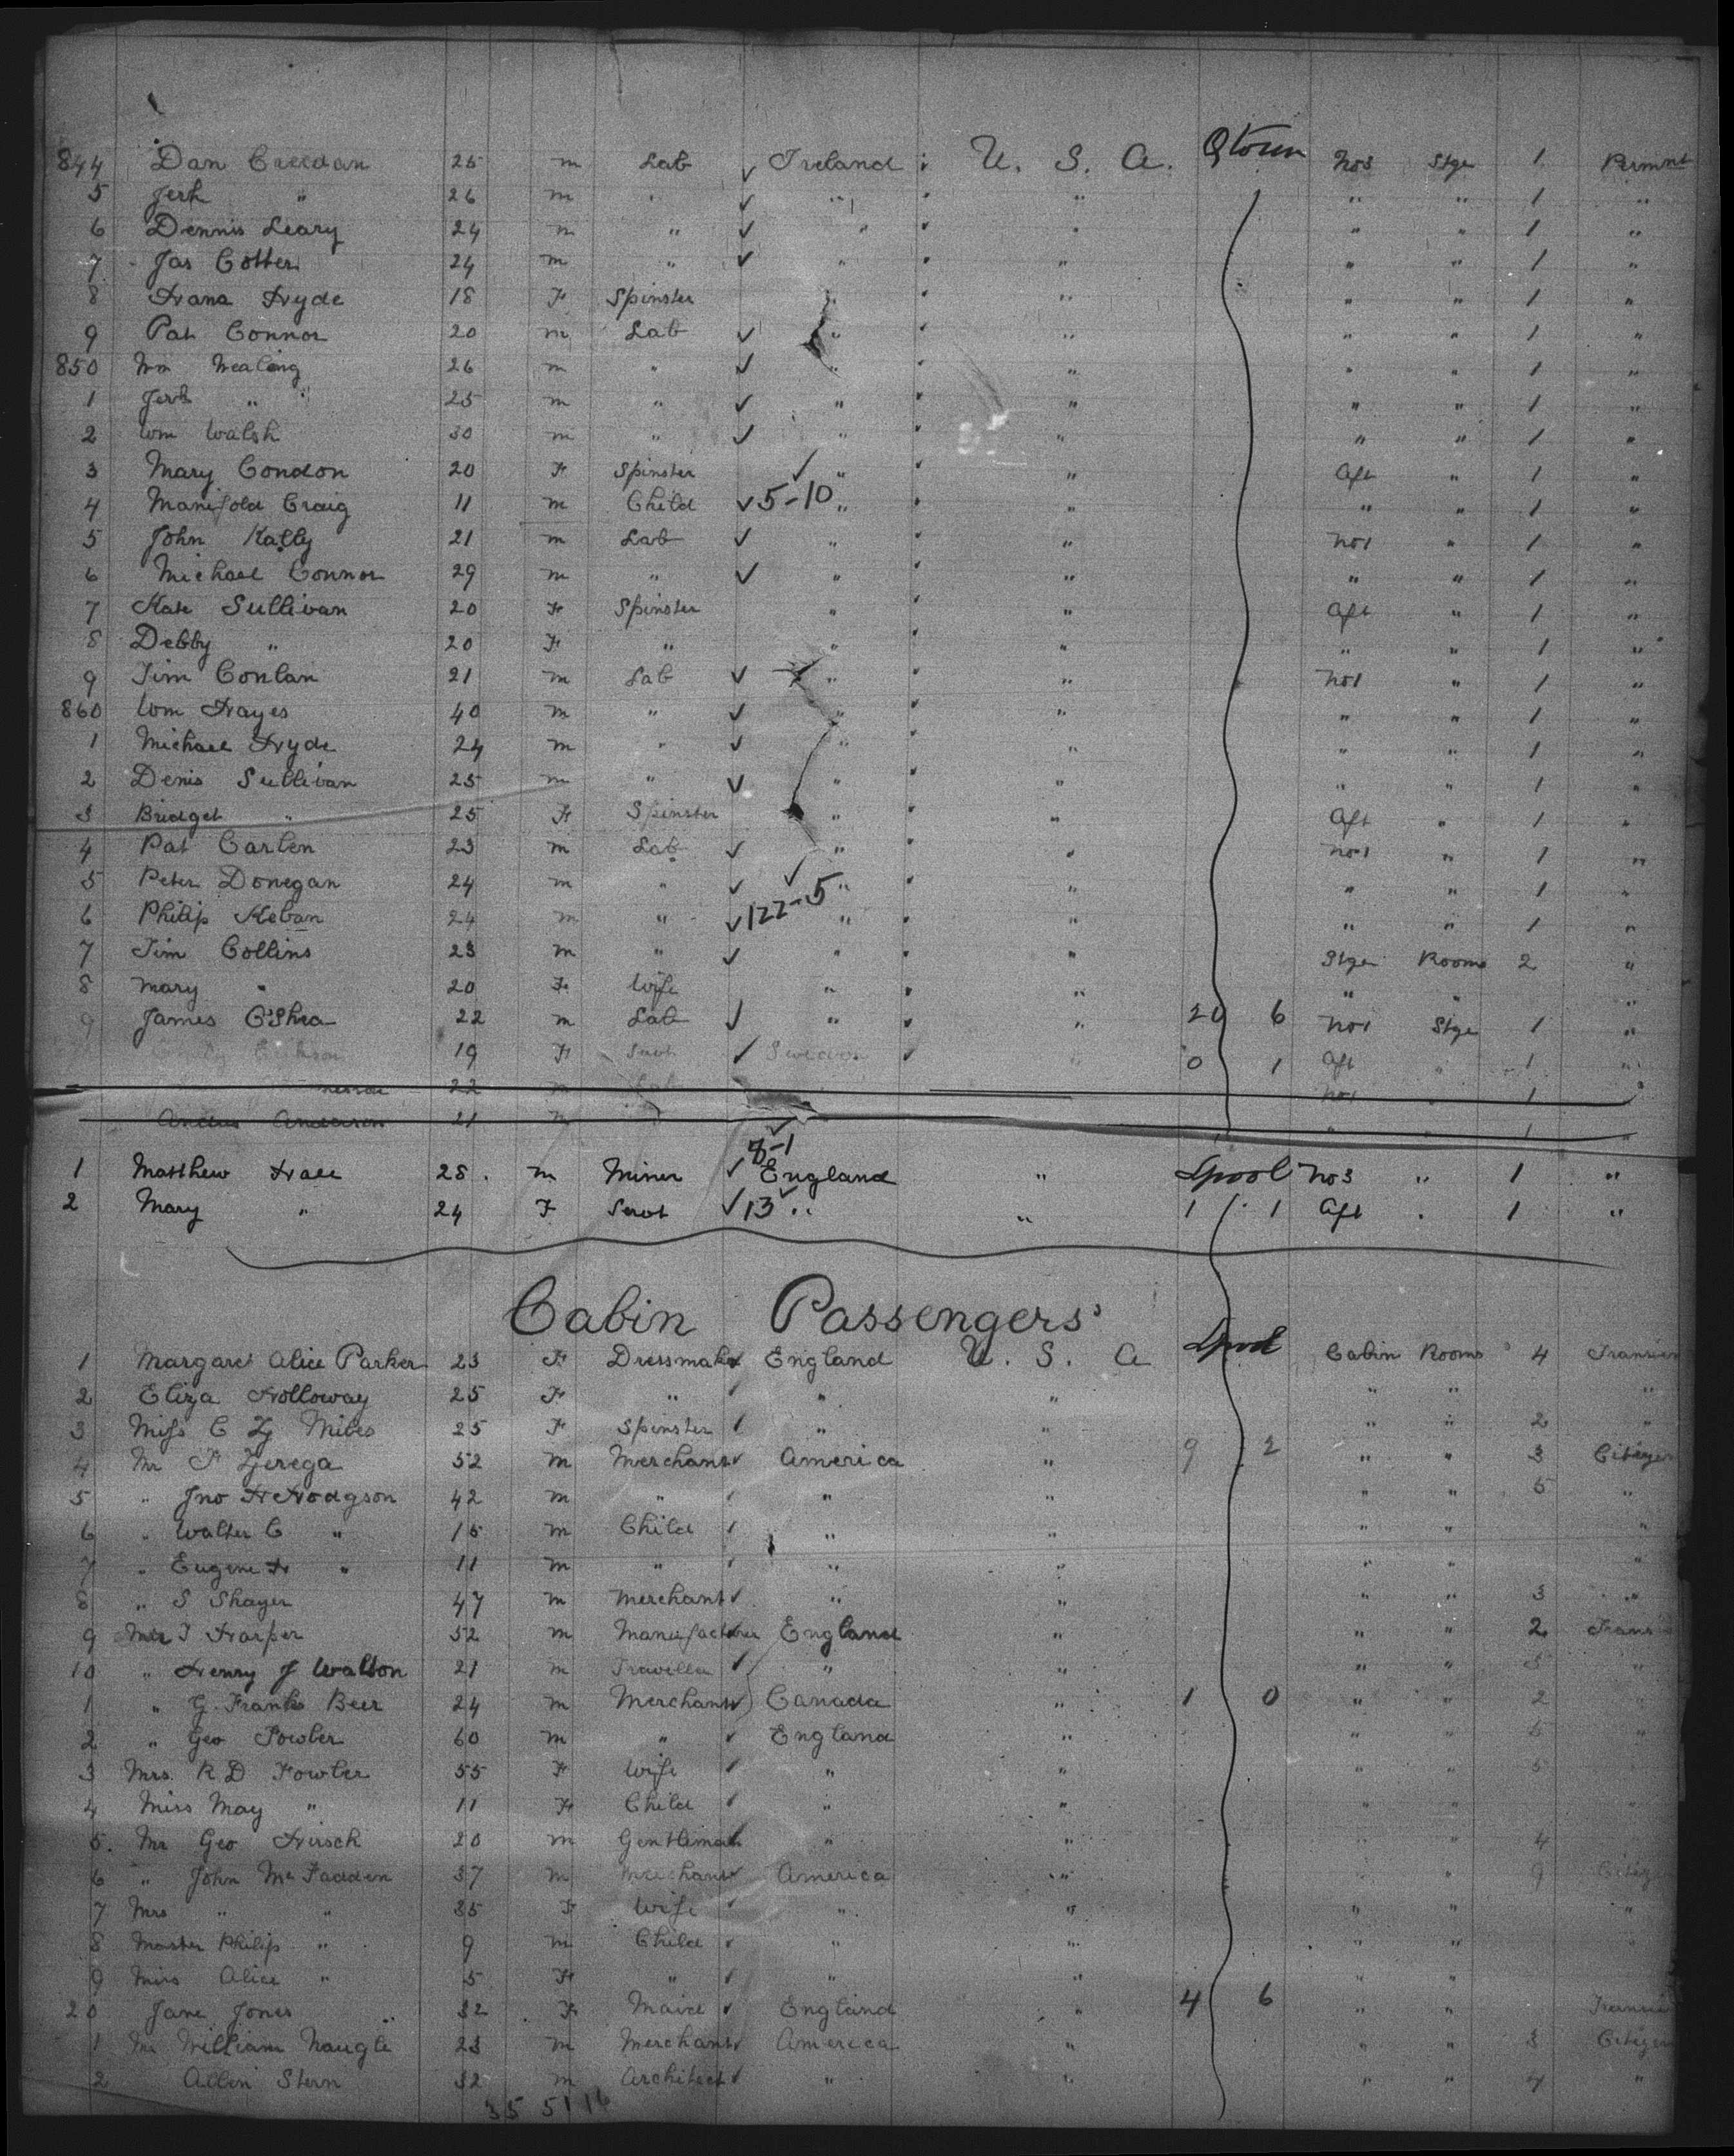 844 Dan Creedan 25 m Lab ✓ Ireland " U. S. A. Qtown No3 Stge 1 Permnt
5 Jerh " 26 m " ✓ " " " " " 1 "
6 Dennis Leary 24 m " ✓ " " " " " 1 "
7 Jas Cotter 24 m " ✓ " " " " " 1 "
8 Hana Hyde 18 F Spinster " " " " " 1 "
9 Pat Connor 20 m Lab ✓ " " " " " 1 "
850 Wm 26 m " ✓ " " " " " 1 "
1 Jerh " 25 m " ✓ " " " " " 1 "
2 Wm Walsh 30 m " ✓ " " " " " 1 "
3 Mary Condon 20 F Spinster ✓ " " " Aft " 1 "
4 Manifold Craig 11 m Child ✓ 5-10 " " " " " 1 "
5 John Kally 21 m Lab ✓ " " " No1 " 1 "
6 Michael Connor 29 m " ✓ " " " " " 1 "
7 Kate Sullivan 20 F Spinster " " " Aft " 1 "
8 Debby " 20 F " " " " " " 1 "
9 Tim Conlan 21 m Lab ✓ " " " No1 " 1 "
860 Wm Hayes 40 m " ✓ " " " " " 1 "
1 Michael Hyde 24 m " ✓ " " " " " 1 "
2 Denis Sullivan 25 m " ✓ " " " " " 1 "
3 Bridget " 25 F Spinster " " " Aft " 1 "
4 Pat Carlen 23 m Lab ✓ " " " No1 " 1 "
5 Peter Donegan 24 m " ✓ ✓ " " " " " 1 "
6 Philip Keban 24 m " ✓ 122-5 " " " " " 1 "
7 Tim Collins 23 m " ✓ " " " Stge Rooms 2 "
8 Mary " 20 F Wife " " " " " "
9 James O'Shea 22 m Lab ✓ " " " 20 6 No1 Stge 1 "
19 F Servt ✓ Sweden " " 0 1 Aft " 1 "
22 m Lab No1 " 1 "
Anderson 21 m " 1 "
8-1
1 Matthew Hall 28 m Miner ✓ England " Lpool No3 " 1 "
2 Mary " 24 F Servt ✓ 13 " " 1 1 Aft " 1 "
Cabin Passengers
1 Margaret Alice Parker 23 F Dressmaker ✓ England U. S. A Lpool Cabin Rooms 4 Transien
2 Eliza Holloway 25 F " ✓ " " " " "
3 Miss C Z Miles 25 F Spinster ✓ " " " " 2 "
4 Mr F Zerega 52 m Merchant ✓ America " 9 2 " " 3 Citizen
5 " Jno H Hodgson 42 m " ✓ " " " " 5 "
6 " Walter C " 15 m Child ✓ " " " " "
7 " Eugene H " 11 m " ✓ " " " " "
8 " S Shayer 47 m Merchant ✓ " " " " 3 "
9 Mr J Harper 52 m Manufacturer England " " " 2 Trans
10 " Henry J Walton 21 m Traveller ✓ " " " " 5 "
1 " G. Franks Beer 24 m Merchant ✓ Canada " 1 0 " " 2 "
2 " Geo Fowler 60 m " ✓ England " " " 5 "
3 Mrs. R D Fowler 55 F Wife ✓ " " " " 5
4 Miss May " 11 F Child ✓ " " " "
5. Mr Geo Hirsch 20 m Gentleman ✓ " " " " 4
6 " John McFadden 37 m Merchant ✓ America " " " 9 Citizen
7 Mrs " " 35 F Wife ✓ " " " " "
8 Master Philip " 9 m Child ✓ " " " " "
9 Miss Alice " 5 F " ✓ " " " "
20 Jane Jones 32 F Maid ✓ England " 4 6 " " Transien
1 Mr William Naugle 23 m Merchant ✓ America " " " 3 Citizen
2 Albin Stern 32 m Architect ✓ " " " " 4 "
35 51 16